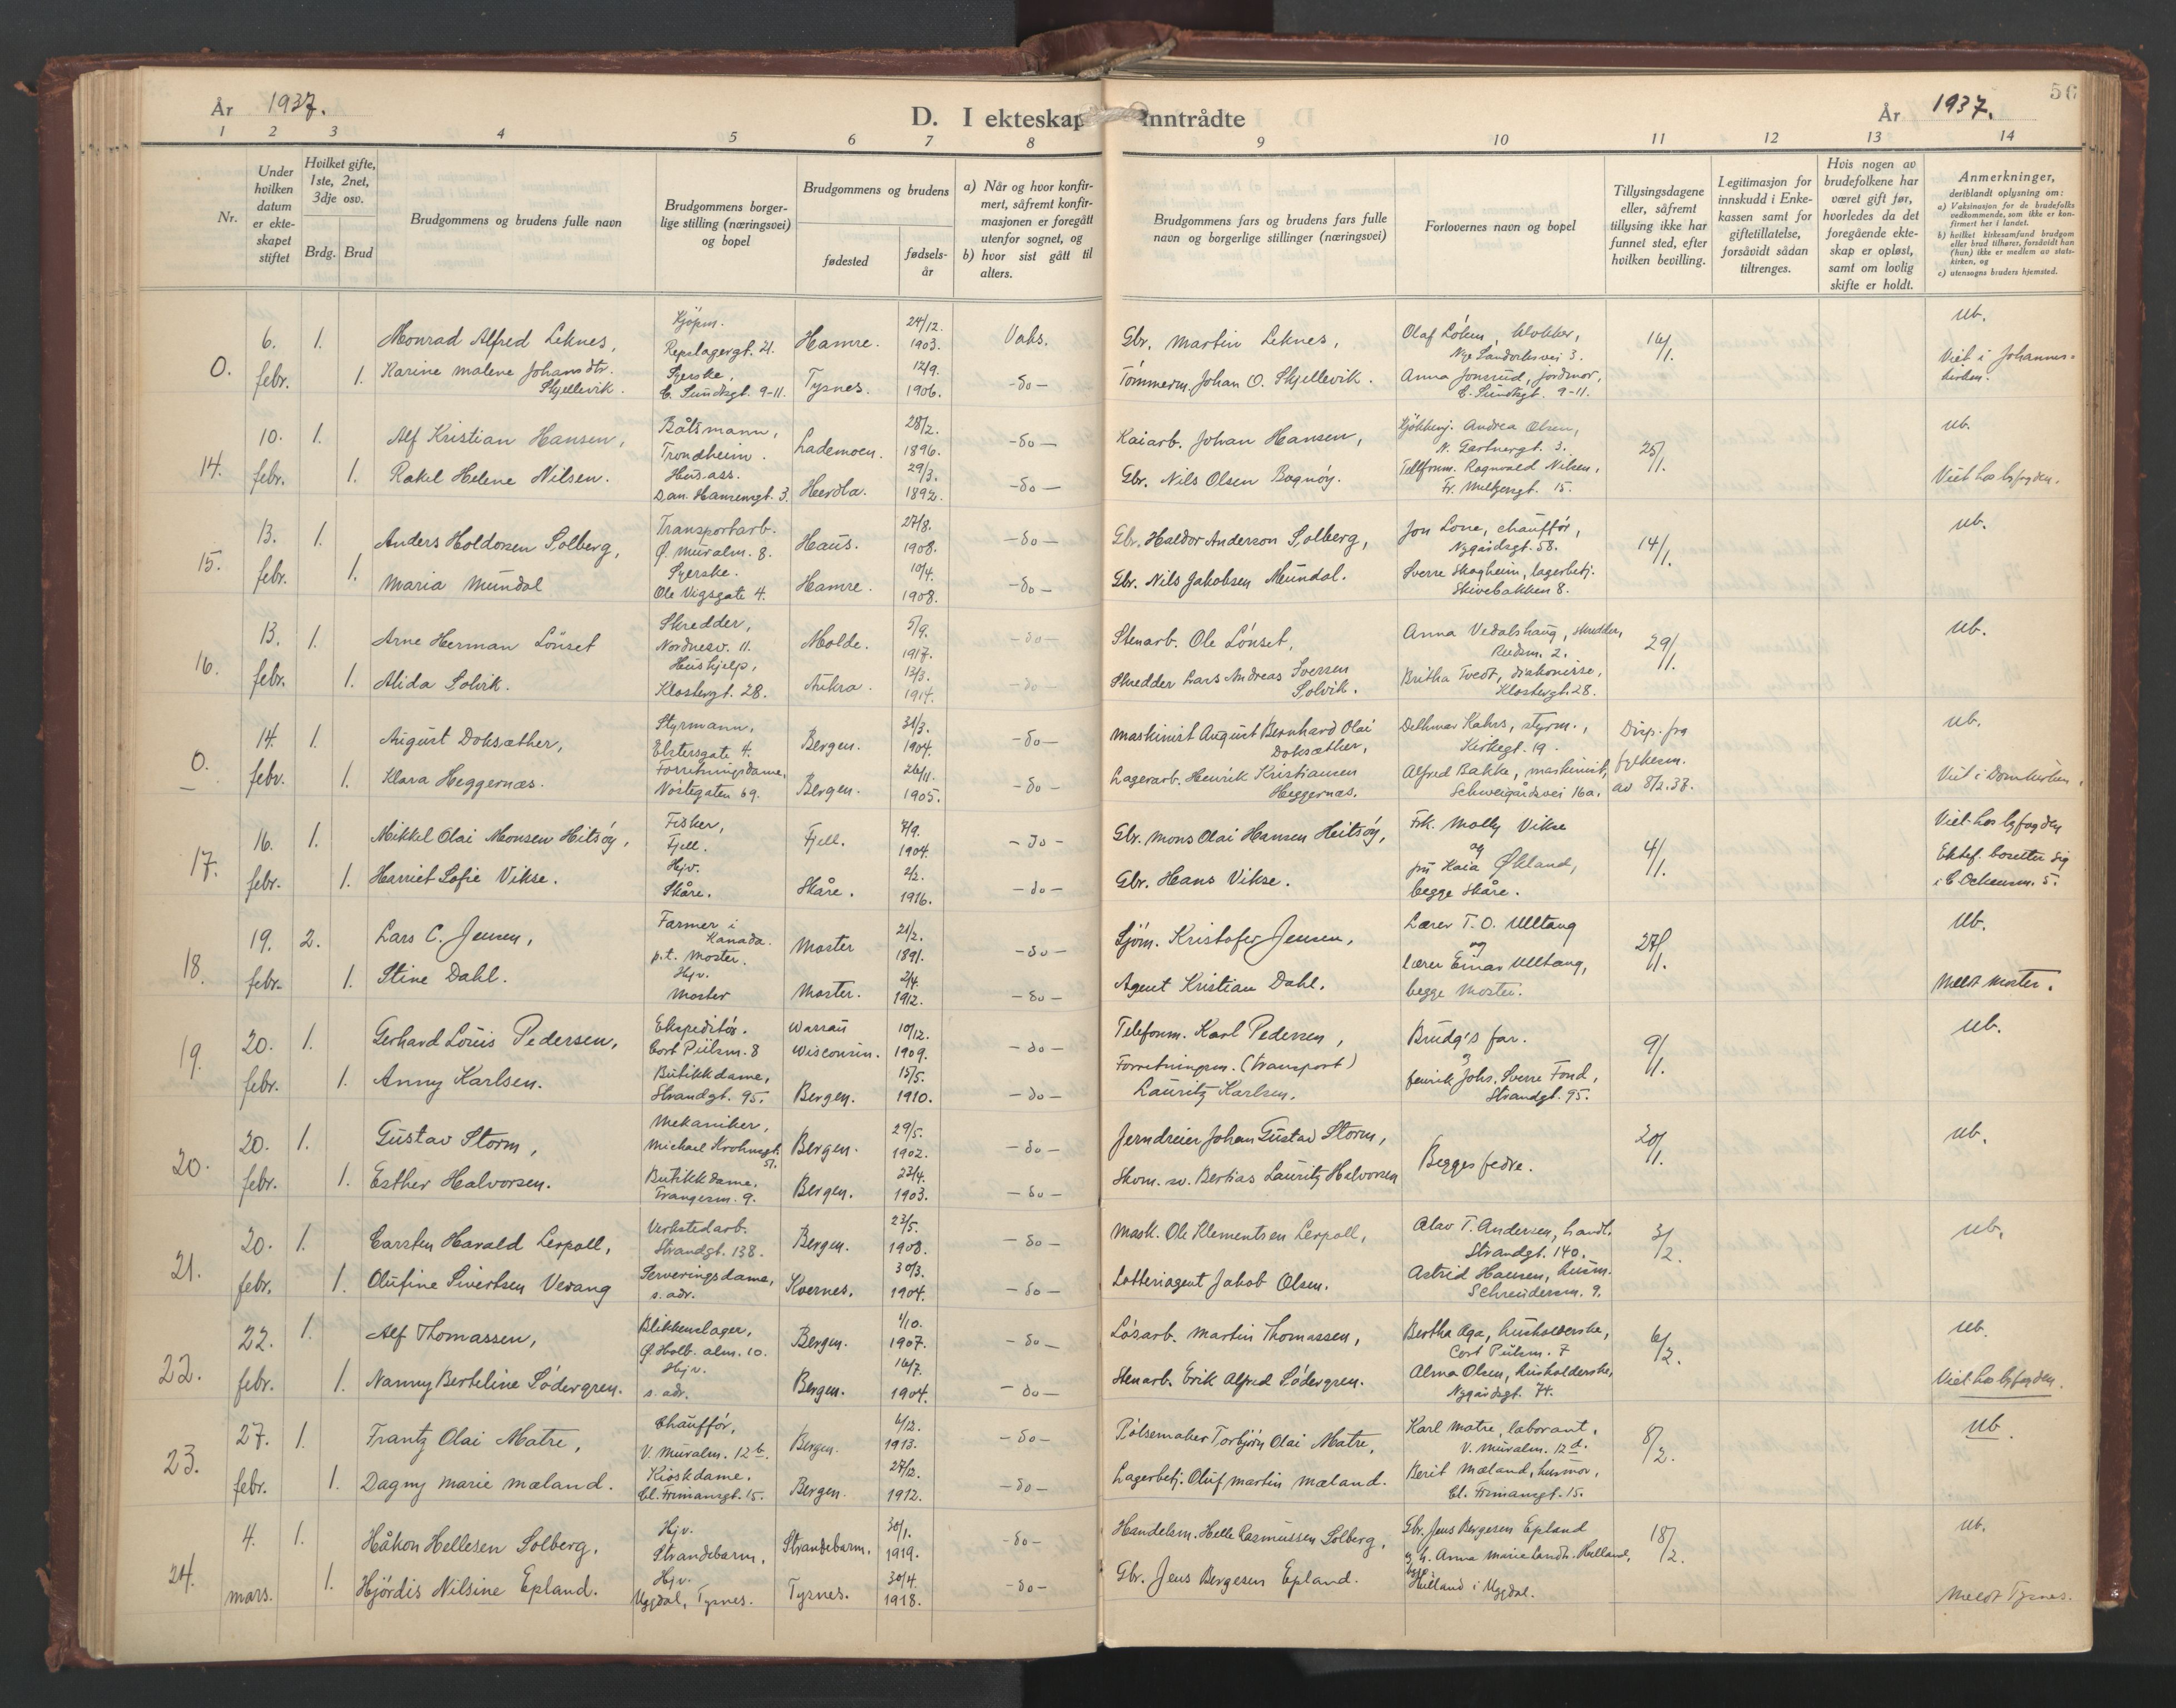 År 1937.
D. I ekteskap inntrådte
År 1937.
56
1 2 3 4 5 6 7 8 9 10 11 12 13 14
Nr.
Under hvilken datum er ekteskapet stiftet
Hvilket gifte, 1ste, 2net, 3dje osv.
Brdg. Brud
Brudgommens og brudens fulle navn
Brudgommens borgerlige stilling (næringsvei) og bopel
Brudgommens og brudens
fødested
fødselsår
a) Når og hvor konfirmert, såfremt konfirmasjonen er foregått utenfor sognet, og
b) hvor sist gått til alters.
Brudgommens fars og brudens fars fulle navn og borgerlige stillinger (næringsvei)
Forlovernes navn og bopel
Tillysingsdagene eller, såfremt tillysing ikke har funnet sted, efter hvilken bevilling.
Legitimasjon for innskudd i Enkekassen samt for giftetillatelse, forsåvidt sådan tiltrenges.
Hvis nogen av brudefolkene har været gift før, hvorledes da det foregående ekteskap er opløst, samt om lovlig skifte er holdt.
Anmerkninger,
deriblandt oplysning om:
a) Vaksinasjon for de brudefolks vedkommende, som ikke er konfirmert her i landet.
b) hvilket kirkesamfund brudgom eller brud tilhører, forsåvidt han (hun) ikke er medlem av statskirken, og
c) utensogns bruders hjemsted.
0. 6. febr. 1. Monrad Alfred Leknes, Kjøpm. Repslagergt. 21. Hamre. 24/12. 1903. Vaks. Gbr. Martin Leknes, Olaf Lohm, klokker, Nye Sandviksvei 3. 16/1. ub.
1. Karine Malene Johansdtr. Skjellevik. Syerske, C. Sundtsgt. 9-11. Tysnes. 12/9. 1906. -do- Tømmerm. Johan O. Skjellevik. Anna Jonsrud, jordmor, C. Sundtsgt. 9-11. Viet i Johanneskirken.
14. 10. febr. 1. Alf Kristian Hansen, Båtsmann, Trondheim. Lademoen. 28/2. 1896. -do- Kaiarb. Johan Hansen, Kjøkkenj. Andrea Olsen, N. Gartnergt. 3. 25/1. ub.
1. Rakel Helene Nilsen. Hus.ass. Dan. Hansensgt. 3. Herdla. 29/3. 1892. -do- Gbr. Nils Olsen Bognøy. Tellform. Ragnvald Nilsen, Fr. Meltzersgt. 15. Viet hos byfogden.
15. 13. febr. 1. Anders Holdorsen Solberg, Transportarb. Ø. Muralm. 8. Haus. 27/8. 1908. -do- Gbr. Haldor Anderson Solberg, Jon Lone, chauffør, Nygårdsgt. 58. 14/1. ub.
1. Maria Mundal Syerske. Ole Vigsgate 4. Hamre. 10/4. 1908. -do- Gbr. Nils Jakobsen Mundal. Sverre Skogheim, lagerbetj. Skivebakken 8.
16. 13. febr. 1. Arne Herman Lönset Skredder, Nordnesv. 11. Molde. 5/9. 1917. -do- Stenarb. Ole Lönset, Anna Vedalshaug, skredder, 29/1. ub.
1. Alida Solvik. Hushjelp, Klostergt. 28. Aukra. 13/3. 1914. -do- Skredder Lars Andreas Iversen Solvik. Britha Tvedt, diakonisse, Klostergt. 28.
0. 14. febr. 1. August Doksæther, Styrmann, Elstersgate 4. Bergen. 31/3. 1904. -do- Maskinist August Bernhard Olai Doksæther, Dethmar Kahrs, styrm., Kirkegt. 19. Disp. fra fylkesm. av 8/2.37. ub.
1. Klara Heggernæs. Forretningsdame, Nøstegaten 69. Bergen. 26/11. 1905. -do- Lagerarb. Henrik Kristiansen Heggernæs. Alfred Bakke, maskinist, Schweigårdsvei 16a. Viet i Domkirken.
17. 16. febr. 1. Mikkel Olai Monsen Heitsøy, Fisker, Fjell. Fjell. 7/9. 1904. -do- Gbr. Mons Olai Hansen Heitsøy, Frk. Molly Vikse og 4/1. Viet hos byfogden
1. Harriet Sofie Vikse. Hjv. Skåre. Skåre. 2/2. 1916. -do- Gbr. Hans Vikse. fru Kaia Økland, begge Skåre. Ektef. bosetter sig i C. Ockensm. 5.
18. 19. febr. 2. Lars C. Jensen, Farmer i Kanada. p.t. Moster. Moster 21/2. 1891. -do- Sjøm. Kristofer Jensen, Lærer T. O. Ulltang og 27/1. ub.
1. Stine Dahl. Hjv. Moster Moster. 2/4. 1912. -do- Agent Kristian Dahl. lærer Einar Ulltang, begge Moster. Meldt Moster.
19. 20. febr. 1. Gerhard Louis Pedersen, Ekspeditør. Cort Piilsm. 8 Warrau Wisconsin. 10/12. 1909. -do- Telefonm. Karl Pedersen, Brudg's far. og 9/1. ub.
1. Anny Karlsen. Butikkdame, Strandgt. 95. Bergen. 15/5. 1910. -do- Forretningsm. (transport) Lauritz Karlsen. fenrik Johs. Sverre Fond, Strandgt. 95.
20. 20. febr. 1. Gustav Storm, Mekaniker, Michael Krohnsgt. 51. Bergen. 29/5. 1902. -do- Jerndreier Johan Gustav Storm, Begges fedre. 20/1. ub.
1. Esther Halvorsen. Butikkdame. Trangesm. 9. Bergen. 22/4. 1903. -do- Skom. sv. Bertias Lauritz Halvorsen
21. 20. febr. 1. Carsten Harald Lerpoll, Verkstedarb. Strandgt. 138. Bergen. 23/5. 1908. -do- Mask. Ole Klementsen Lerpoll, Olav T. Andersen, handl. Strandgt. 140. 3/2. ub.
1. Olufine Sivertsen Vevang Serveringsdame, s. adr. Kvernes. 30/3. 1904. -do- Lotteriagent Jakob Olsen. Astrid Hansen, husm. Schreudersm. 9.
22. 22. febr. 1. Alf Thomassen, Blikkenslager, Ø. Holb. alm. 10. Bergen. 1/10. 1907. -do- Løsarb. Martin Thomassen, Bertha Aga, husholderske, Cort Piilsm. 7 6/2. ub.
1. Nanny Berteline Södergren. Hjv. s. adr. Bergen. 16/7. 1904. -do- Stenarb. Erik Alfred Södergren. Alma Olsen, husholderske, Nygårdsgt. 74. Viet hos byfogden.
23. 27. febr. 1. Frantz Olai Matre, Chauffør, V. Muralm. 12b. Bergen. 6/12. 1913. -do- Pølsemaker Torbjørn Olai Matre, Karl Matre, laborant, V. Muralm. 12d. 8/2. ub.
1. Dagny Marie Mæland. Kioskdame. Cl. Frimansgt. 15. Bergen. 27/12. 1912. -do- Lagerbetj. Oluf Martin Mæland. Berit Mæland, husmor, Cl. Frimansgt. 15.
24. 4. mars. 1. Håkon Hellesen Solberg. Hjv. Strandebarm. Strandebarm. 30/1. 1919. -do- Handelsm. Helle Rasmussen Solberg, Gbr. Jens Bergesen Epland 18/2. ub.
1. Hjördis Nilsine Epland. Hjv. Uggdal, Tysnes. Tysnes. 30/4. 1918. -do- Gbr. Jens Bergesen Epland. Anna Marie Helland, begge Helland i Uggdal. Meldt Tysnes.